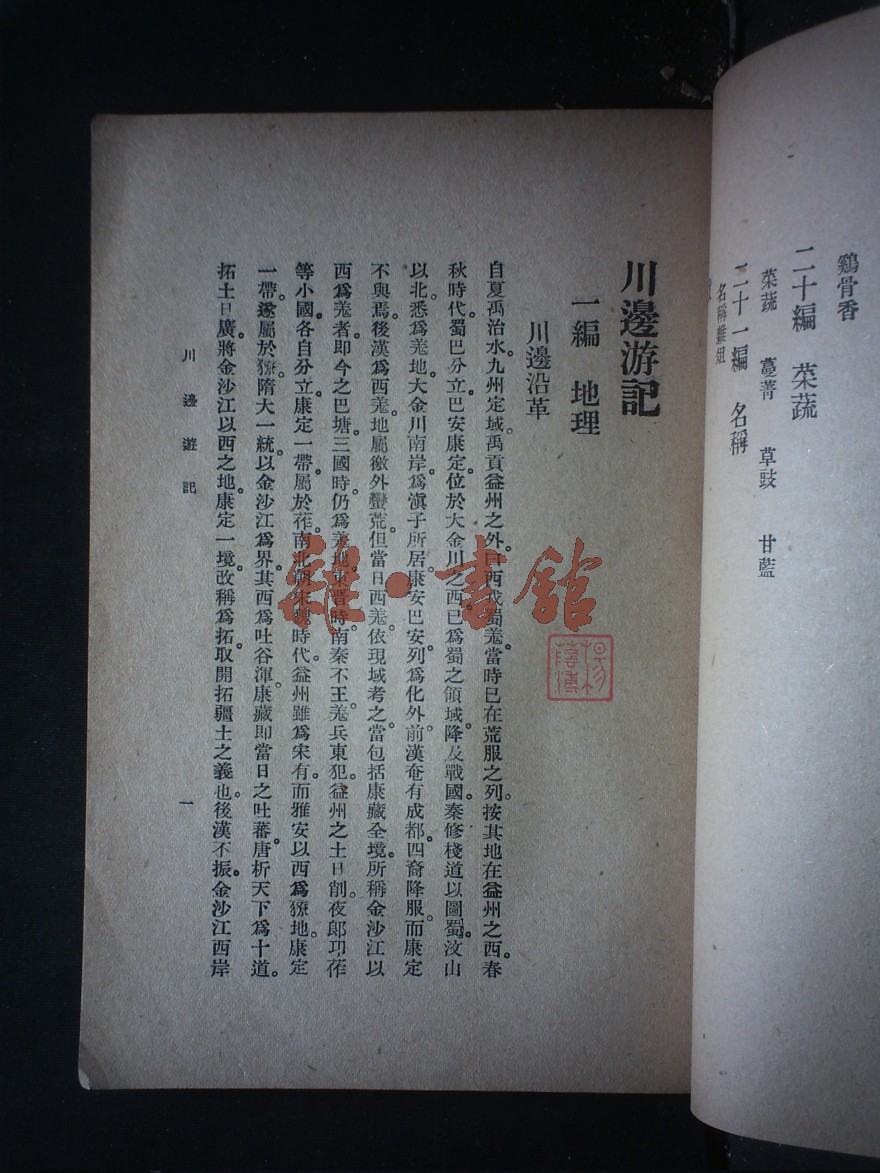 鷄骨香
二十編　菜蔬
菜蔬　蔓菁　草豉　甘藍
二十一編　名稱
名稱雜組
川邊游記
一編　地理
川邊沿革
自夏禹治水。九州定域。禹貢益州之外。曰西戎蜀羗。當時已在荒服之列。按其地在益州之西。春
秋時代。蜀巴分立。巴安康定。位於大金川之西。已爲蜀之領域。降及戰國。秦修棧道以圖蜀。汶山
以北。悉爲羗地。大金川南岸。爲滇子所居。康安巴安。列爲化外。前漢奄有成都。四裔降服。而康定
不與焉。後漢爲西羗。地屬徼外蠻荒。但當日西羗。依現域考之。當包括康藏全境。所稱金沙江以
西爲羗者。即今之巴塘。三國時。仍爲羗地。東晋時。南秦不王。羗兵東犯。益州之土日削。夜郎邛莋
等小國。各自分立。康定一帶。屬於莋。南北朝宋魏時代。益州雖爲宋有。而雅安以西爲獠地。康定
一帶。遂屬於獠。隋大一統。以金沙江爲界。其西爲吐谷渾。康藏即當日之吐蕃。唐析天下爲十道。
拓土日廣。將金沙江以西之地。康定一境。改稱爲拓。取開拓疆土之義也。後漢不振。金沙江西岸
川邊遊記
一
雜·書館